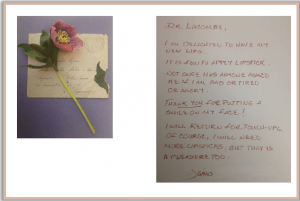 DR. LACOMBE,
I AM DELIGHTED TO HAVE MY
NEW LIPS.
IT IS FUN TO APPLY LIPSTICK.
NOT ONCE HAS ANYONE ASKED
ME IF I AM SAD OR TIRED
OR ANGRY.
THANK YOU FOR PUTTING A
SMILE ON MY FACE!
I WILL RETURN FOR TOUCH-UPS,
OF COURSE, I WILL NEED
MORE LIPSTICKS. BUT THIS IS
A PLEASURE TOO.